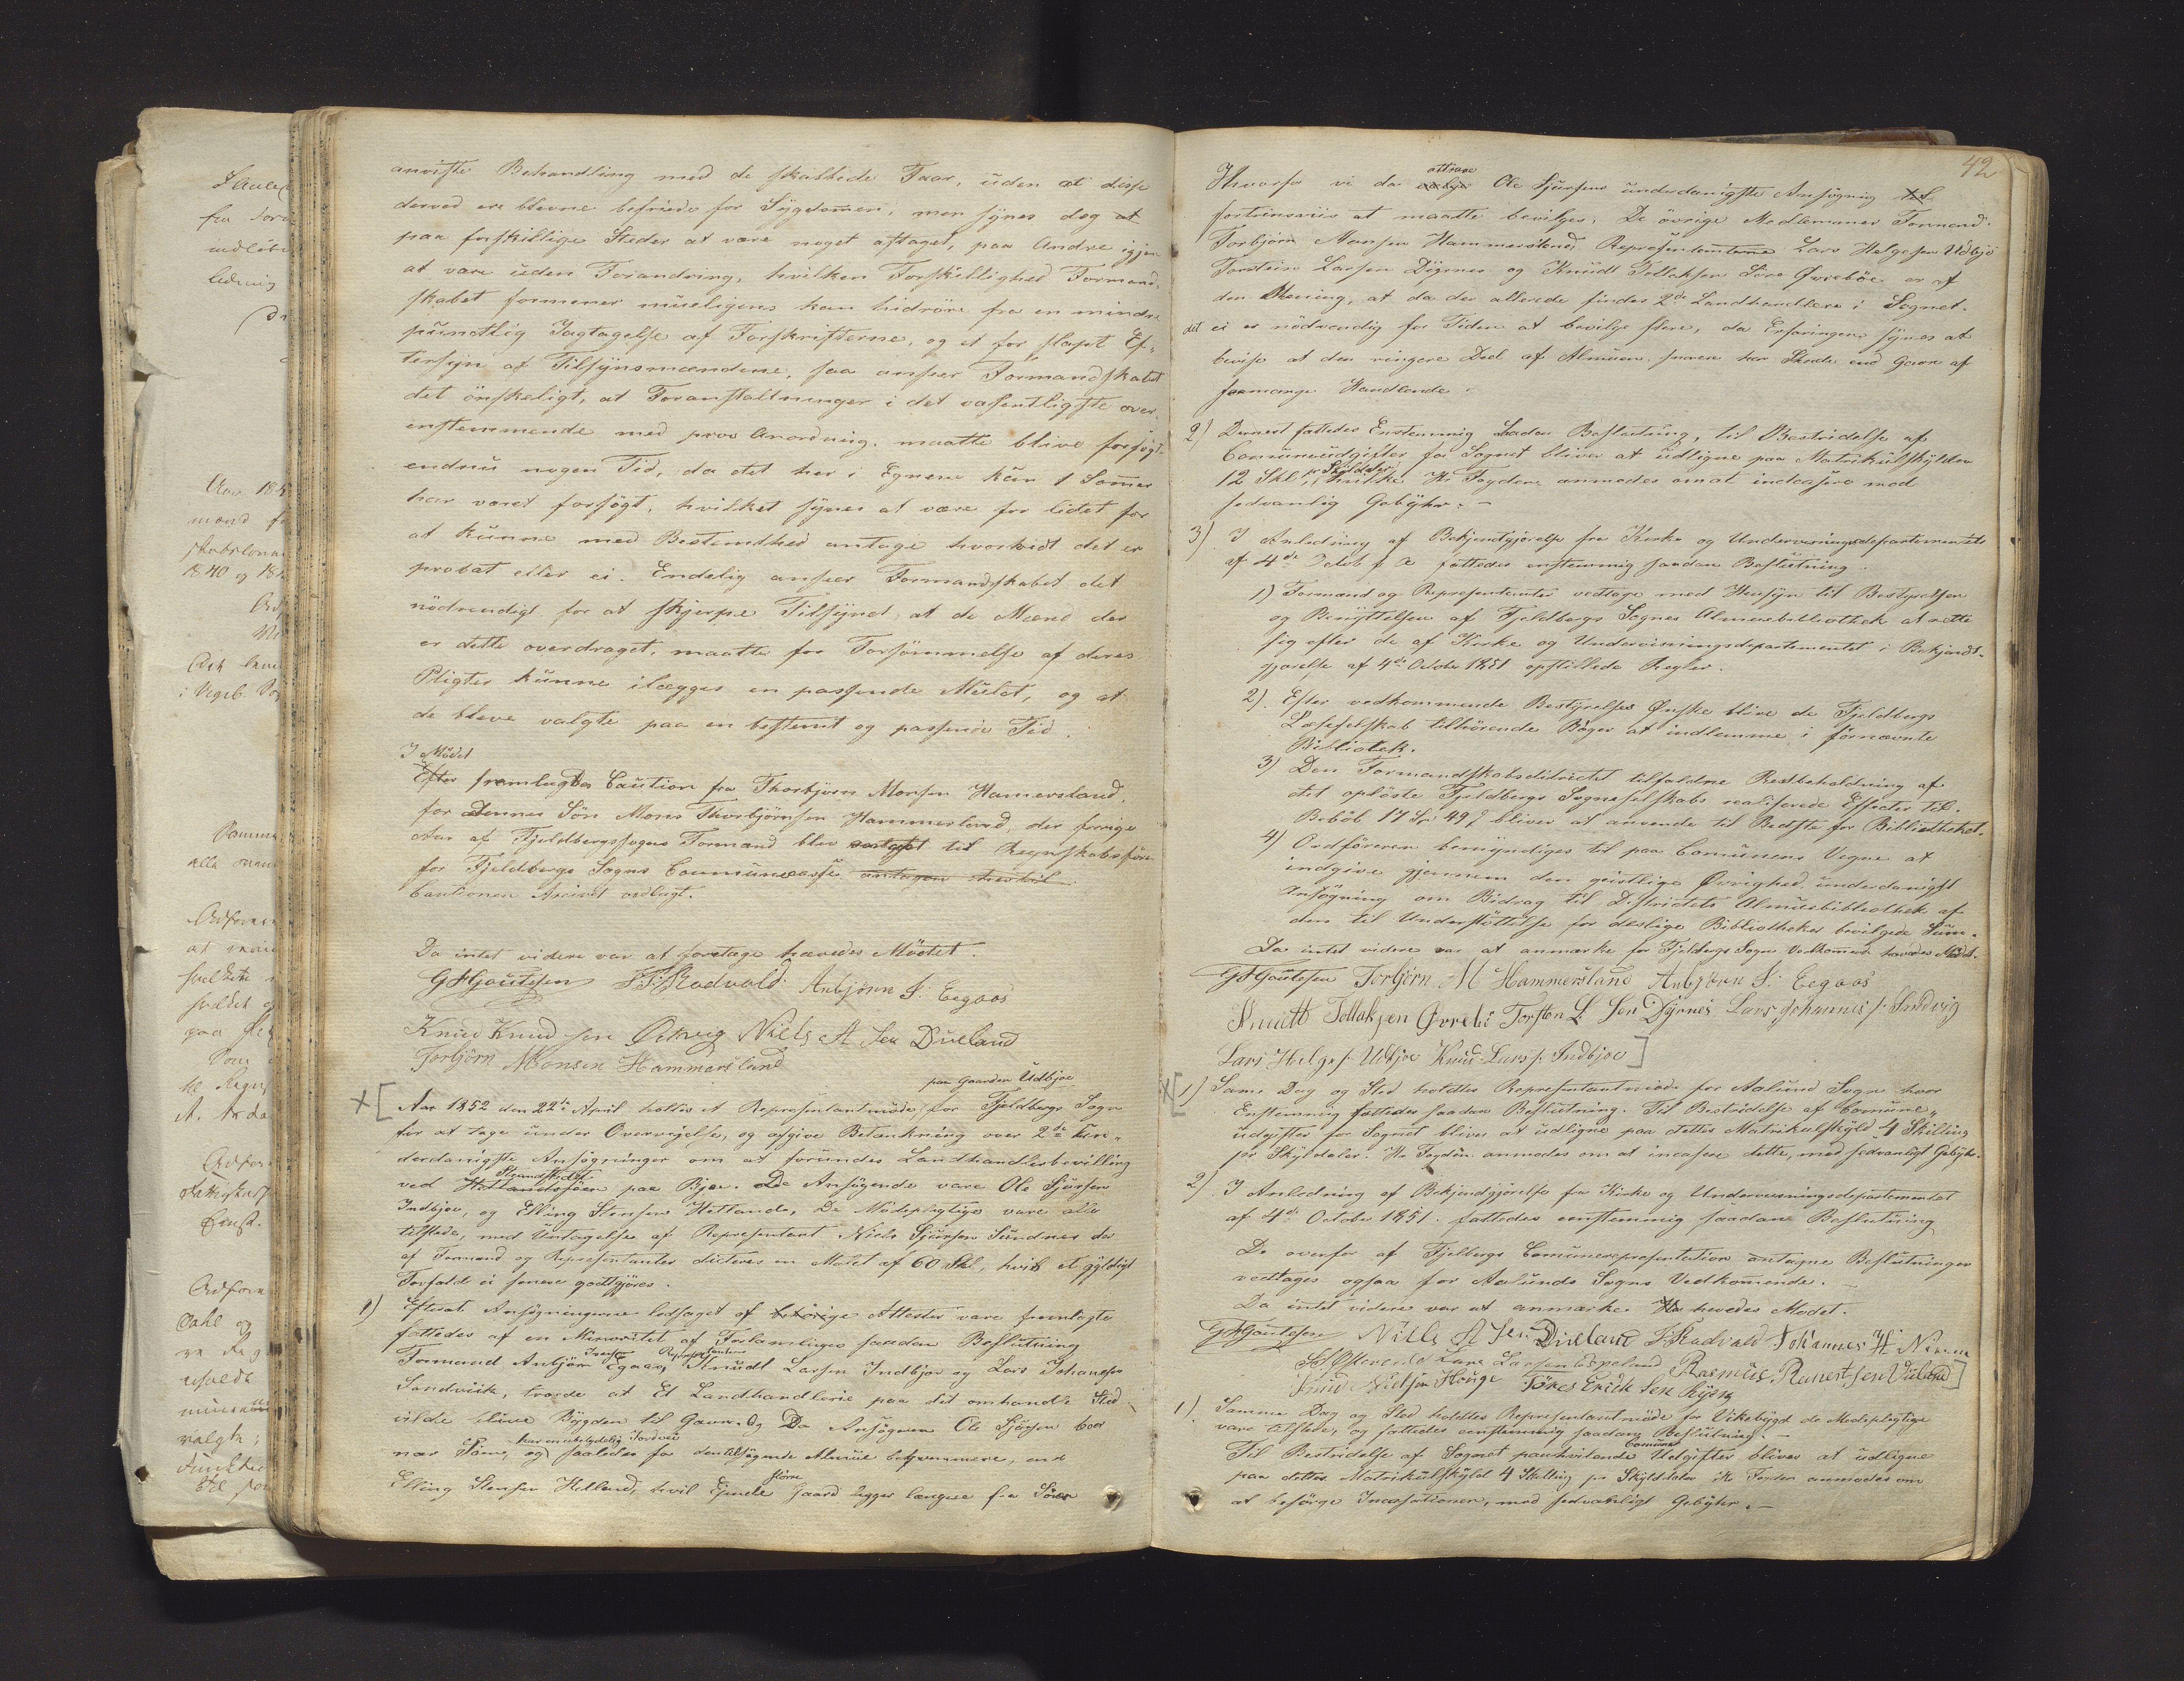 anviste Behandling med de skabbede Faar, uden at disse
derved ere blevne befriede for Sygdomen, men synes dog at
paa forskillige Steder at være noget aftaget, paa Andre igjen
at være uden Forandring, hvilken Forskjellighed Formand-
skabet formener mueligens kan hidröre fra en mindre
punctlig Iagtagelse af Forskrifterne, og et for slapt Ef-
tersyn af Tilsynsmændene, saa anseer Formandskabet
det önskeligt, at Foranstaltninger i det væsentligste over-
enstemmende med prov Anordning. maatte blive forsögt
endnu nogen Tid, da det her i Egnene kun 1 Sommer
har været forsögt, hvilket synes at være for lidet for
at kunne med Bestemthed antage hvorvidt det er
probat eller ei. Endelig anseer Formandskabet det
nödvendigt for at skjerpe Tilsynet, at de Mænd der
er dette overdraget, maatte for Forsömmelse af deres
Pligter kunne ilægges en passende Mulct, og at
de bleve valgte paa en bestemt og passende Tid.
I Mödet
Efter fremlagdes Caution fra Thorbjörn Monsen Hamersland,
for dennes Sön Mons Thorbjörnsen Hammersland, der forrige
Aar af Fjeldbergssogns Formænd blev valgt til Regnskabsförer
for Fjeldbergs Sogns Communecasse antagen
Cautionen Arcivet vedlagt.
Da intet videre var at foretage hævedes Mödet.
G H Gautesen T. T. Radvald Anbjörn I. Eegaas
Knud Knudsen Ölweg Niels A Sen Dueland
Torbjörn Monsen Hammersland
paa Gaarden Udbjoe
Aar 1852 den 22de April holdtes et Representantmöde for Fjeldbergs Sogn
for at tage under Overveielse, og afgive Betænkning over 2de un-
derdanigste Ansögninger om at forundes Landhandlerbevilling
Strandstedet
ved Hetlandsöen paa Bjoe. De Ansögende vare Ole Sjursen
Indbjoe, og Elling Stensen Hetland, De Mödepligtige vare alle
tilstede, med Undtagelse af Representant Niels Sjursen Sundnes der
af Formænd og Representanter dicteres en Mulct af 60 Skl, hvis et gyldigt
Forfald ei senere godtgjöres.
1) Efterat Ansögningerne ledsaget af behörige Attester vare fremlagte
fattedes af en Minoritet af Forsamlingen saadan Beslutning
Iversen Representantene
Formand Anbjörn Egaas, Knudt Larsen Indbjoe og Lars Johannesen
Sandviik, troede at Et Landhandlerie paa det omhandle Sted
vilde blive Bygden til Gavn. Og Da Ansögeren Ole Sjursen boer
har en ubetydelig Jordvei
nær Söen, og saaledes for den tilsögende Almue beqvemmere, end
större
Elling Stensen Hetland, hvis Eiende Gaard ligger længere fra Söen
42
attraae
Hvorfor vi da Ole Sjursens underdanigste Ansögning
fortrinsviis at maatte bevilges. De övrige Medlemmer Formand
Torbjörn Monsen Hammersland, Representanterne Lars Helgesen Udbjo
Torstein Larsen Dyrnes og Knudt Tollaksen Övreböe er af
den Mening, at da der allerede findes 2de Landhandlere i Sognet.
det ei er nödvendig for Tiden at bevilge flere, da Erfaringen synes at
bevise at den ringere Deel af Almuen snarere har Skade end Gavn af
formange Handlende.
2) Dernest fattedes Enstemmig saadan Beslutning, til Bestridelse af
Communeudgifter for Sognet bliver at udligne paa Matrikulskylden
pr Skylddaler
12 Skl, hvilke Hr Fogden anmodes om at indcasere med
sedvanlig Gebyhr. -
3) I Anledning af Bekjendtgjörelse fra Kirke og Undervisningsdepartementet
af 4de Octob f A fattedes enstemmig saadan Beslutning.
1) Formænd og Representanter vedtage med Hensyn til Bestyrelsen
og Benyttelsen af Fjeldbergs Sognes Almuebibliothek at rette
sig efter de af Kirke og Undervisningsdepartementet i Bekjendt-
gjörelse af 4de Octobr 1851 opstillede Regler.
2). Efter vedkommende Bestyrelses Önske blive de Fjeldbergs
Læseselskab tilhörende Böger at indlemme i förnævnte
Bibliotek.
3) Den Formandskabsdistrictet tilfaldne Restbeholdning af
det oplöste Fjeldbergs Sogneselskabs realiserede Effecter til.
Beböb 17 Spd 49 s bliver at anvende til Bedste for Bibliotheket.
4) Ordföreren bemyndiges til paa Comunens Vegne at
indgive gjennem den geistlige Övrighed underdanigst
Ansögning om Bidrag til Districtets Almuebibliothek af
den til Understöttelse for deslige Bibliotheker bevilgede Sum.
Da intet videre var at anmærke for Fjelbergs Sogn Vedkommende hævedes Mödet.
G H Gautesen Torbjörn M Hammersland Anbjörn I. Eegaas
Knudt Tollaksen Övrebö Torsten L Sen Dyrnes Lars Johannes s. Sandvig
Lars Helge s. Udbjoe Knud Lars s. Indbjoe
1) Same Dag og Sted holdtes Representantmöde for Aalund Sogn hvor
Enstemmig fattedes saadan Beslutning. Til Bestridelse af Comune-
udgifter for Sognet bliver at udligne paa dettes Matrikulskyld 4 Skilling
pr Skylddaler. Hr Fogden anmodes om at incasere dette, med sedvanligt Gebyhr.
2) I Anledning af Bekjendtgjörelse fra Kirke og Undervisningsdepartementet
af 4de October 1851. fattedes eenstemmig saadan Beslutning
De ovenfor af Fjelbergs Comunerepresentation antagne Beslutninger
vedtages ogsaa for Aalunds Sogns Vedkomende. -
Da intet videre var at anmærke hevedes Mödet.
G H Gautesen Niels A Sen Dueland T. Radvald Johannes H
Lars Larsen Espeland Rasmus Reinertsen Vieland
Knud Nielsen Houge Töres Erick Sen
1) Samme Dag og Sted holdtes Representantmöde for Vikebygd de Mödepligtige
vare tilstede, og fattedes eenstemmig saadan Beslutning. -
Comune
Til Bestridelse af Sognet paahvilende Udgifter bliver at udligne
paa dettes Matrikulskyld 4 Skilling pr Skylddaler Hr Fogden anmodes om
at besörge Incassationen, med sedvanligt Gebyhr. -